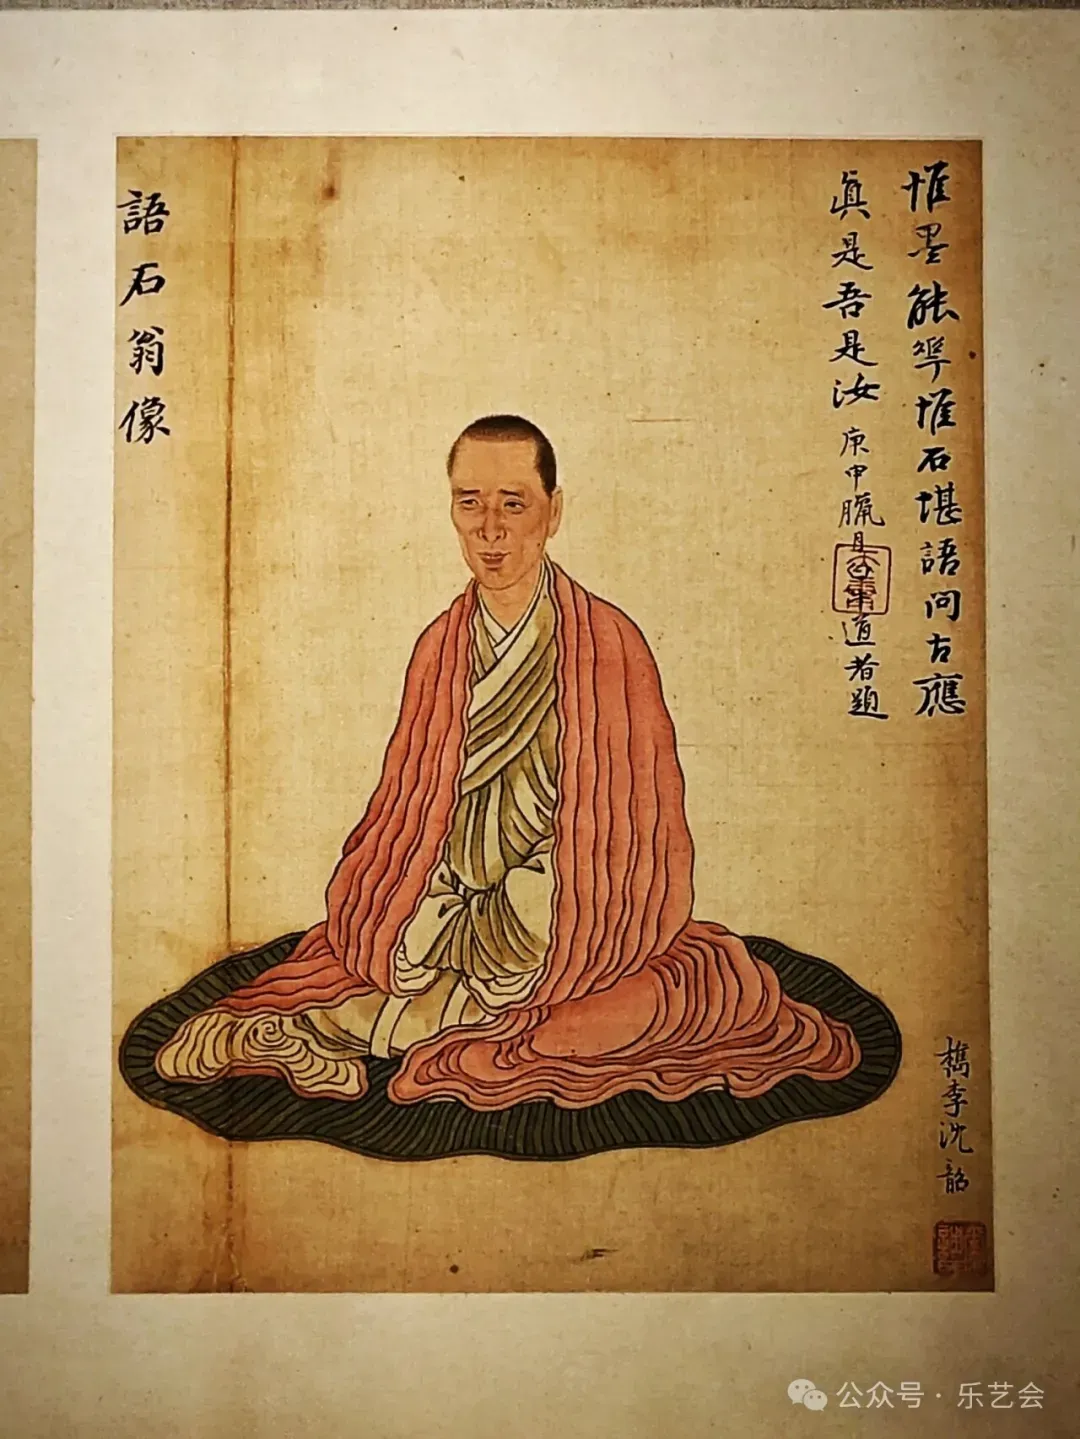 惟墨能惟石堪語問古應
眞是吾是汝 庚申臘月道者題
語石翁像
檇李沈韶
公众号 · 乐艺会